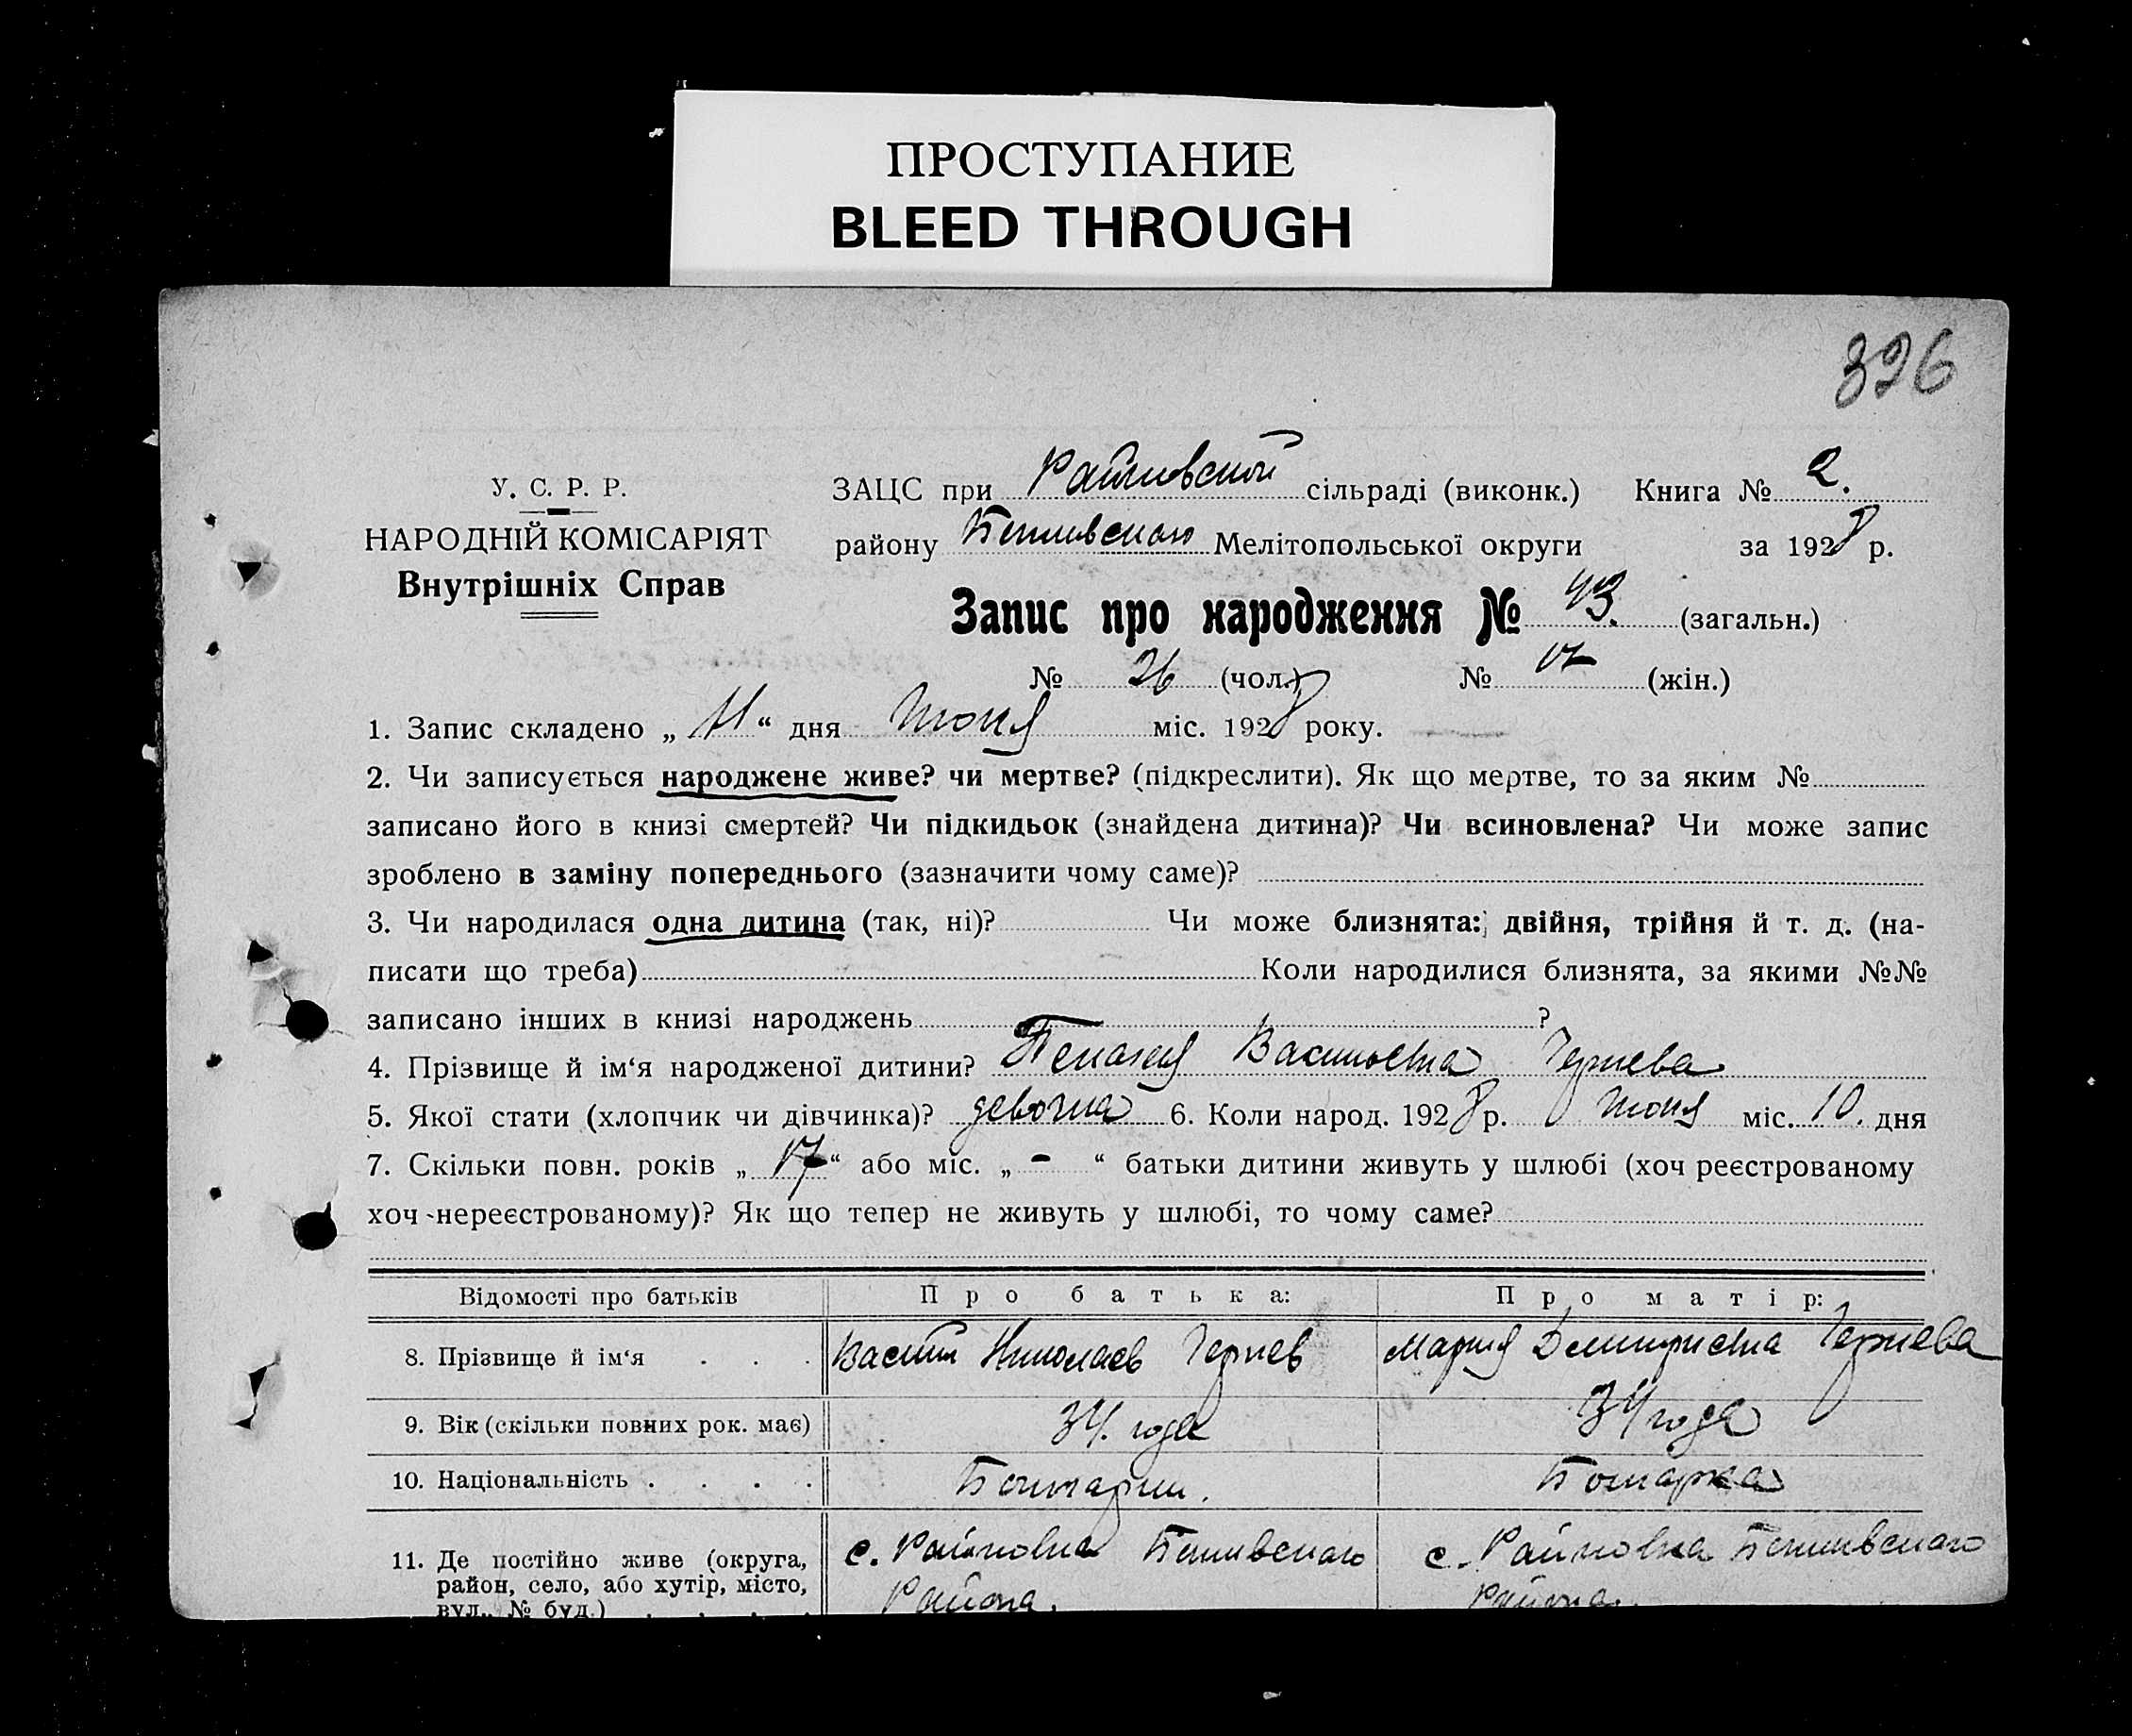 ПРОСТУПАНИЕ
BLEED THROUGH
326
У. С. Р. Р.
НАРОДНІЙ КОМІСАРІЯТ
Внутрішніх Справ
ЗАЦС при Райновской сільраді (виконк.) Книга № 2.
району Мелітопольської округи за 1928 р.
Запис про народження № 43. (загальн.)
№ 26 (чол.) № 17 (жін.)
1. Запис складено „ 11 “ дня Июня міс. 1928 року.
2. Чи записується народжене живе? чи мертве? (підкреслити). Як що мертве, то за яким №
записано його в книзі смертей? Чи підкидьок (знайдена дитина)? Чи всиновлена? Чи може запис
зроблено в заміну попереднього (зазначити чому саме)?
3. Чи народилася одна дитина (так, ні)? Чи може близнята: двійня, трійня й т. д. (на-
писати що треба) Коли народилися близнята, за якими №№
записано інших в книзі народжень ?
4. Прізвище й ім‘я народженої дитини? Пелагия Васильевна Чернева
5. Якої стати (хлопчик чи дівчинка)? девочка 6. Коли народ. 1928 р. Июня міс. 10. дня
7. Скільки повн. років „ 17 “ або міс. „ - “ батьки дитини живуть у шлюбі (хоч реєстрованому
хоч нереєстрованому)? Як що тепер не живуть у шлюбі, то чому саме?
Відомості про батьків Про батька: Про матір:
8. Прізвище й ім‘я . . . Василий Николаев Чернев Мария Дмитриевна Чернева
9. Вік (скільки повних рок. має) 34. года 34 года
10. Національність . . . . Болгарин. Болгарка
11. Де постійно живе (округа, с. Райновка с. Райновка
район, село, або хутір, місто,
вул., № буд.) . . . . Района. Района.